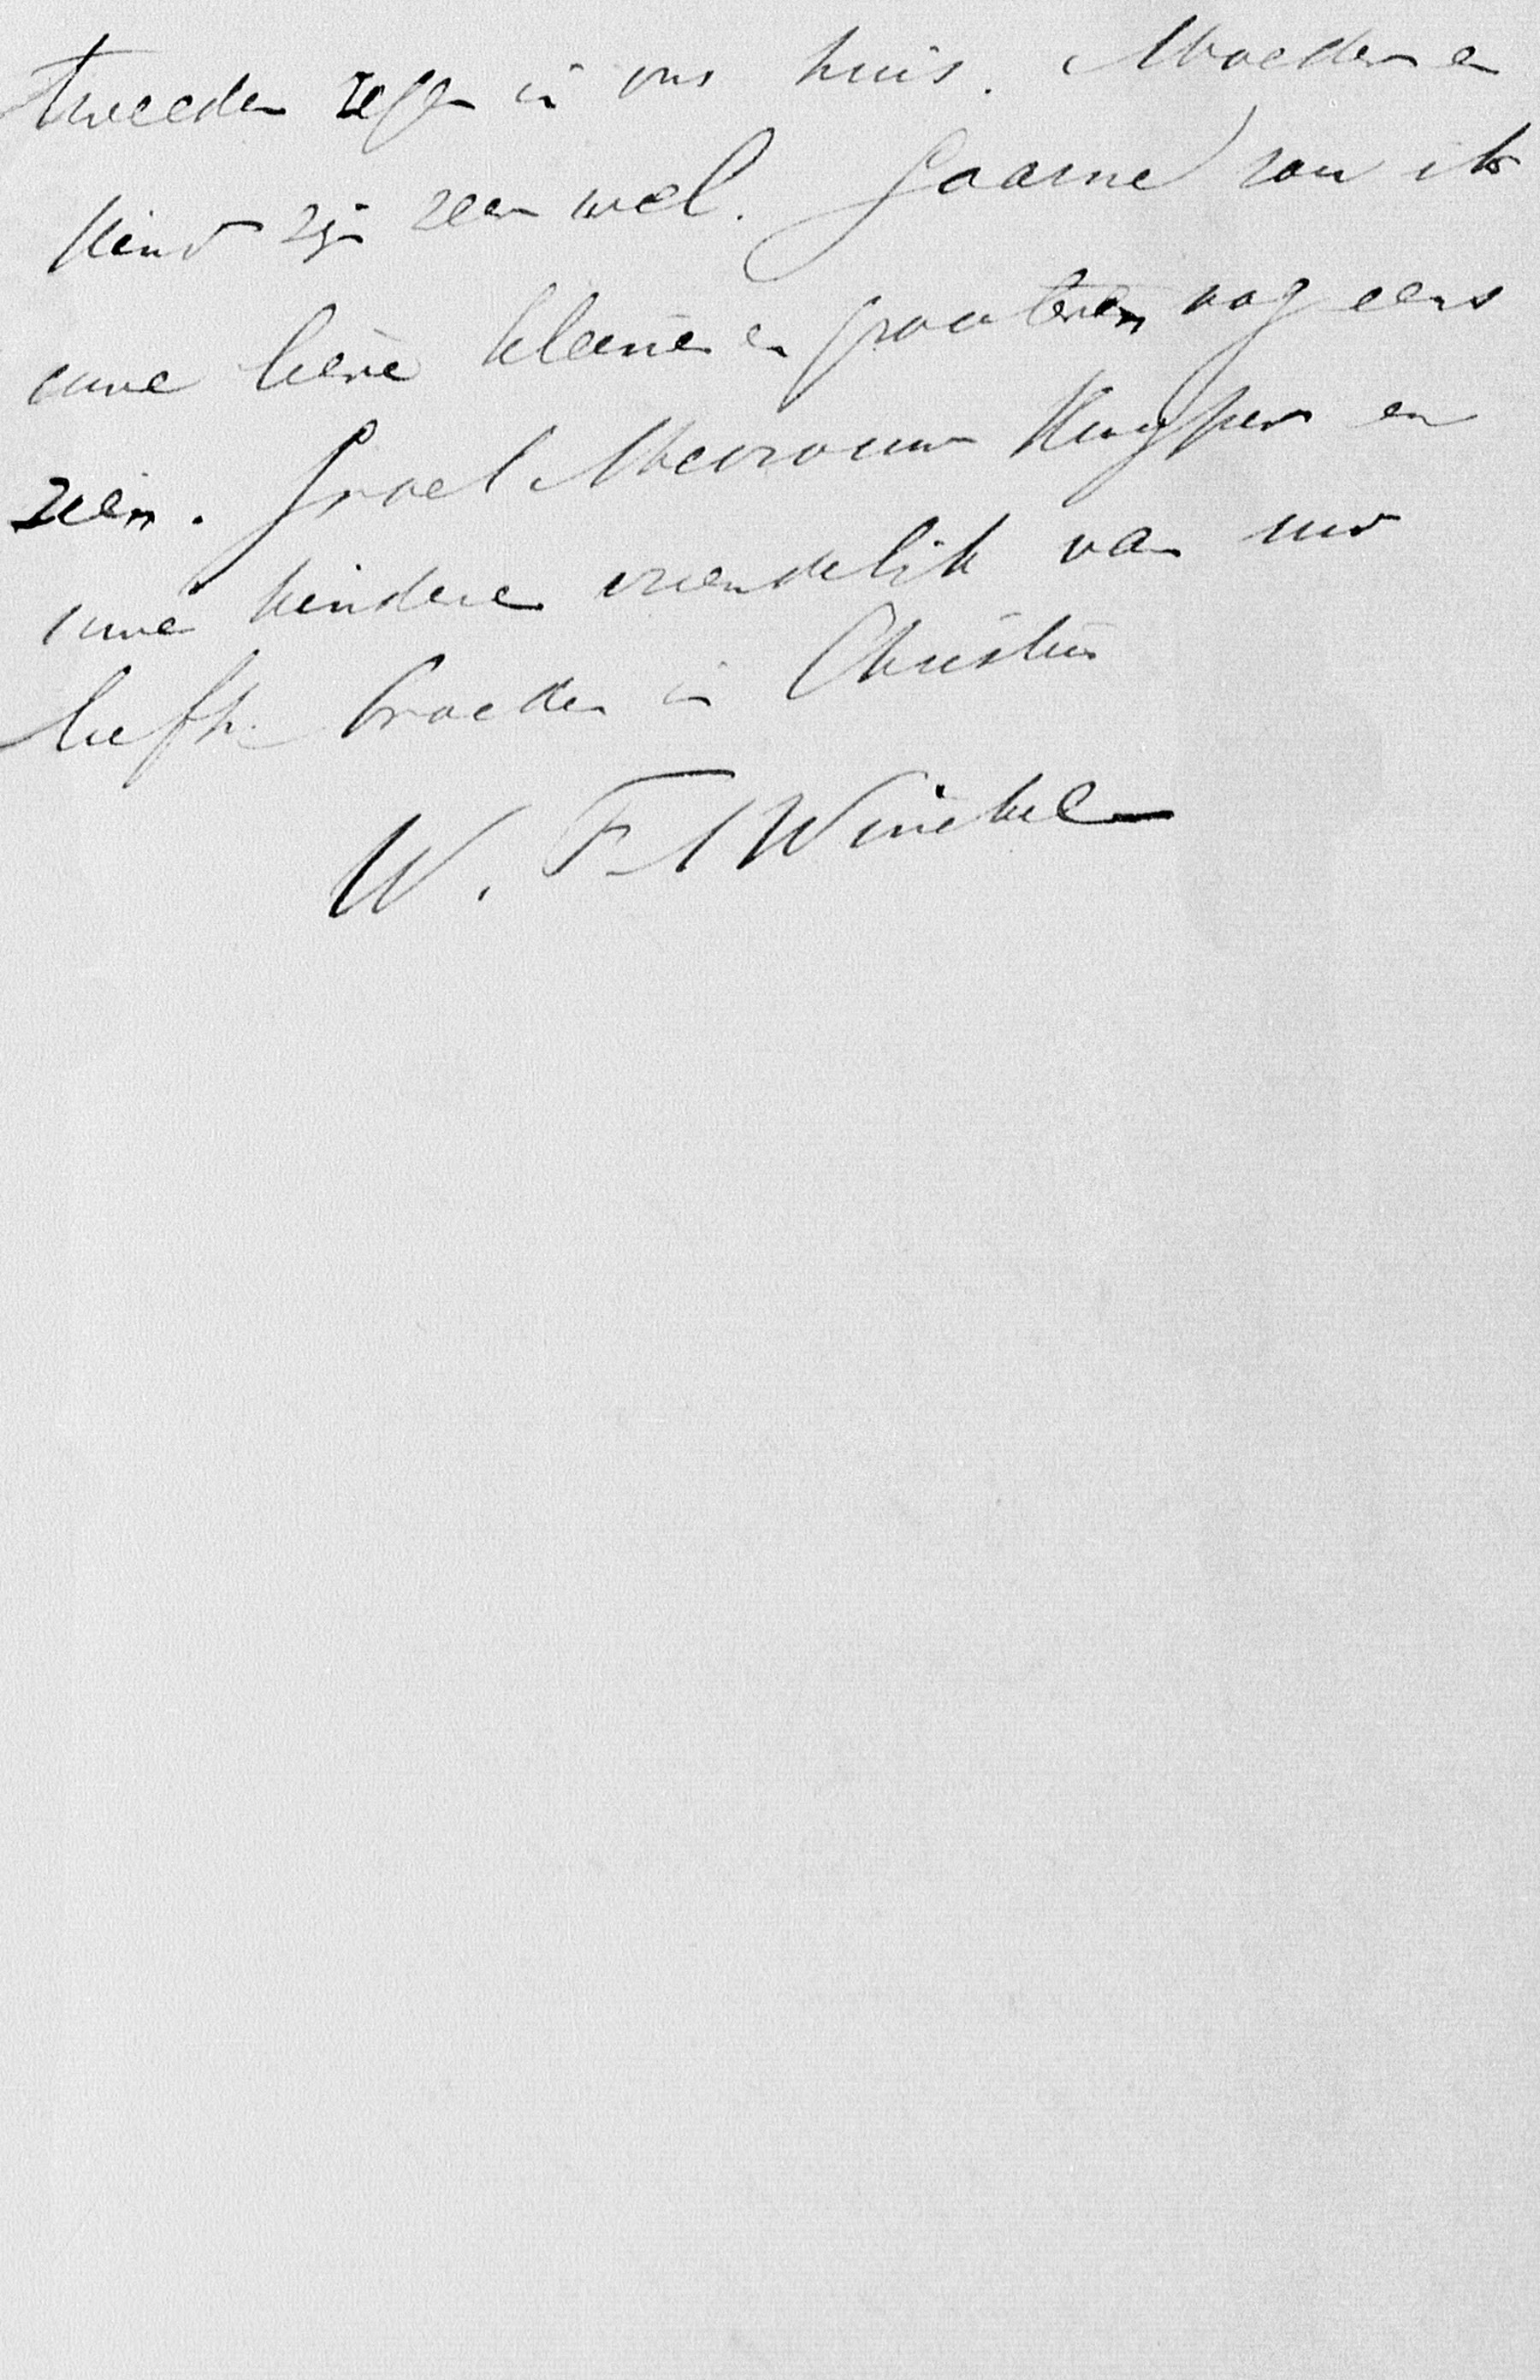 tweeden zegen in ons huis. Moeder en
kind zijn zeer wel. Gaarne zou ik
uwe lieve kleinen en grooteren nog eens
zien. Groet Mevrouw Kuyper en
uwe kinderen vriendelijk van uw
liefh. broeder in Christus
W. F. A Winckel